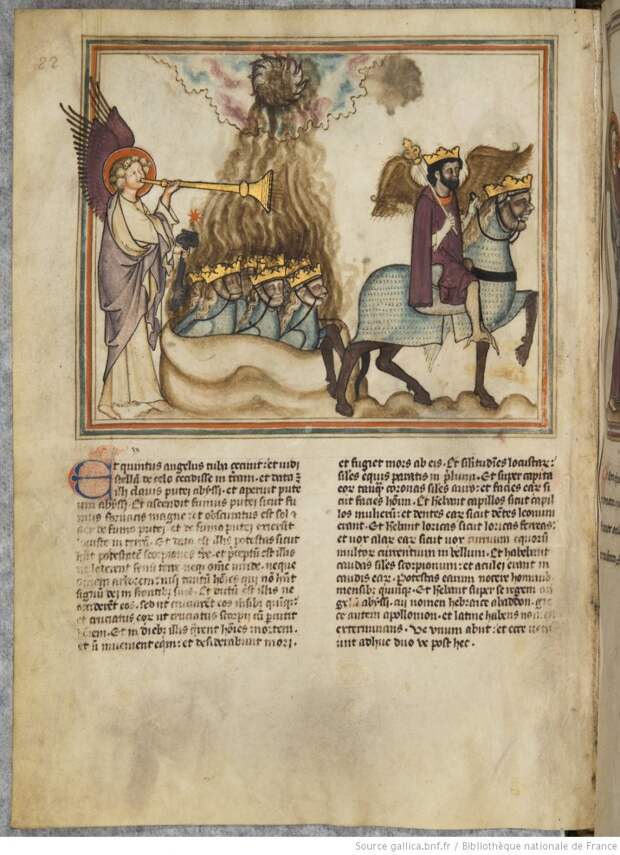 22
Et quintus angelus tuba cecinit: et uidi
stellā de celo cecidisse in terrā. et data ē
illi clauis putei abyssi. et aperuit pute
um abyssi. Et ascendit fumus putei sicut fu
mus fornacis magne: et obscuratus est sol
aer de fumo putei et de fumo putei exierūt
locuste in terrā. Et data est illis potestas sicut
hn̄t potestatē scorpiones t̄re. et p̄ceptū est illis
ne lederent fenū terre neq; om̄e uiride. neque
om̄em arborem: nisi tantū hōies qui nō hn̄t
signū dei in frontibꝰ suis. Et dictū est illis ne
occiderēt eos. sed ut cruciarēt mensibꝰ quinq;:
et cruciatus eoꝝ ut cruciatus scorpii cū p̄cutit
hōiem. Et in diebꝰ illis q̄rent hōies mortem.
et nō inuenient eam: et desiderabunt mori.
et fugiet mors ab eis. Et silitudīes locustaꝝ:
siles equis paratis in p̄lium. Et super capita
eaꝝ tanq̄ corone siles auro: et facies eaꝝ si
cut facies hōim. Et hebant capillos sicut capil
los mulieꝝ: et dentes eaꝝ sicut dētes leonum
erant. Et hebant loricas sicut loricas ferreas:
et uox alaꝝ eaꝝ sicut uox curruum equoꝝ
multoꝝ currentium in bellum. Et habebant
caudas siles scorpionum: et aculei erant in
caudis eaꝝ. Potestas earum nocere hominibꝰ
mensibꝰ quinq;. Et hebant super se regem an
gelū abyssi. cui nomen hebraice abadon. gre
ce autem apollion. et latine habens nomen
exterminans. Ve vnum abiit: et ecce ueni
unt adhuc duo ve post hec.
Source gallica.bnf.fr / Bibliothèque nationale de France